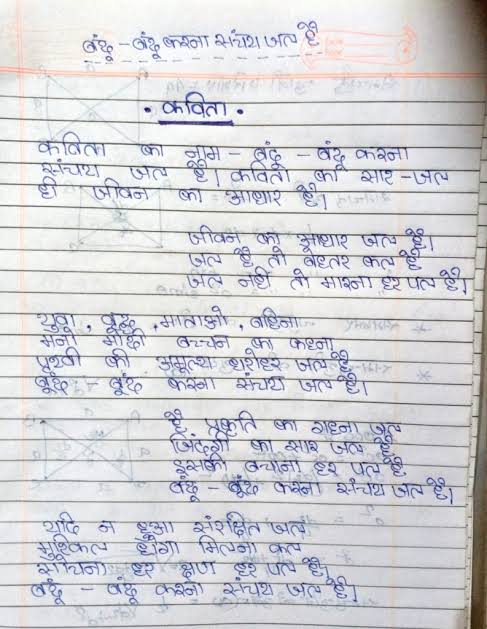 बंदू - बंदू करना संचय जल है
कविता
कविता का नाम - बंदू - बंदू करना
संचय जल है। कविता का सार - जल
ही जीवन का आधार है।
जीवन का आधार जल है।
जल है तो बेहतर कल है
जल नहीं तो मारना हर पल है।
युवा, वृद्ध, माताओ, बहिना
मनो मादी बच्चन का कहना
पृथ्वी की अमूल्य धरोहर जल है
बूंद - बूंद करना संचय जल है।
है प्रकृति का गहना जल
जिंदगी का सार जल है
इसको बचाना हर पल है
बंदू - बूंद करना संचय जल है।
यदि न हुआ संरक्षित जल
मुश्किल होगा मिलना कल
सोचना हर क्षण हर पल है।
बंदू - बंदू करना संचय जल है।